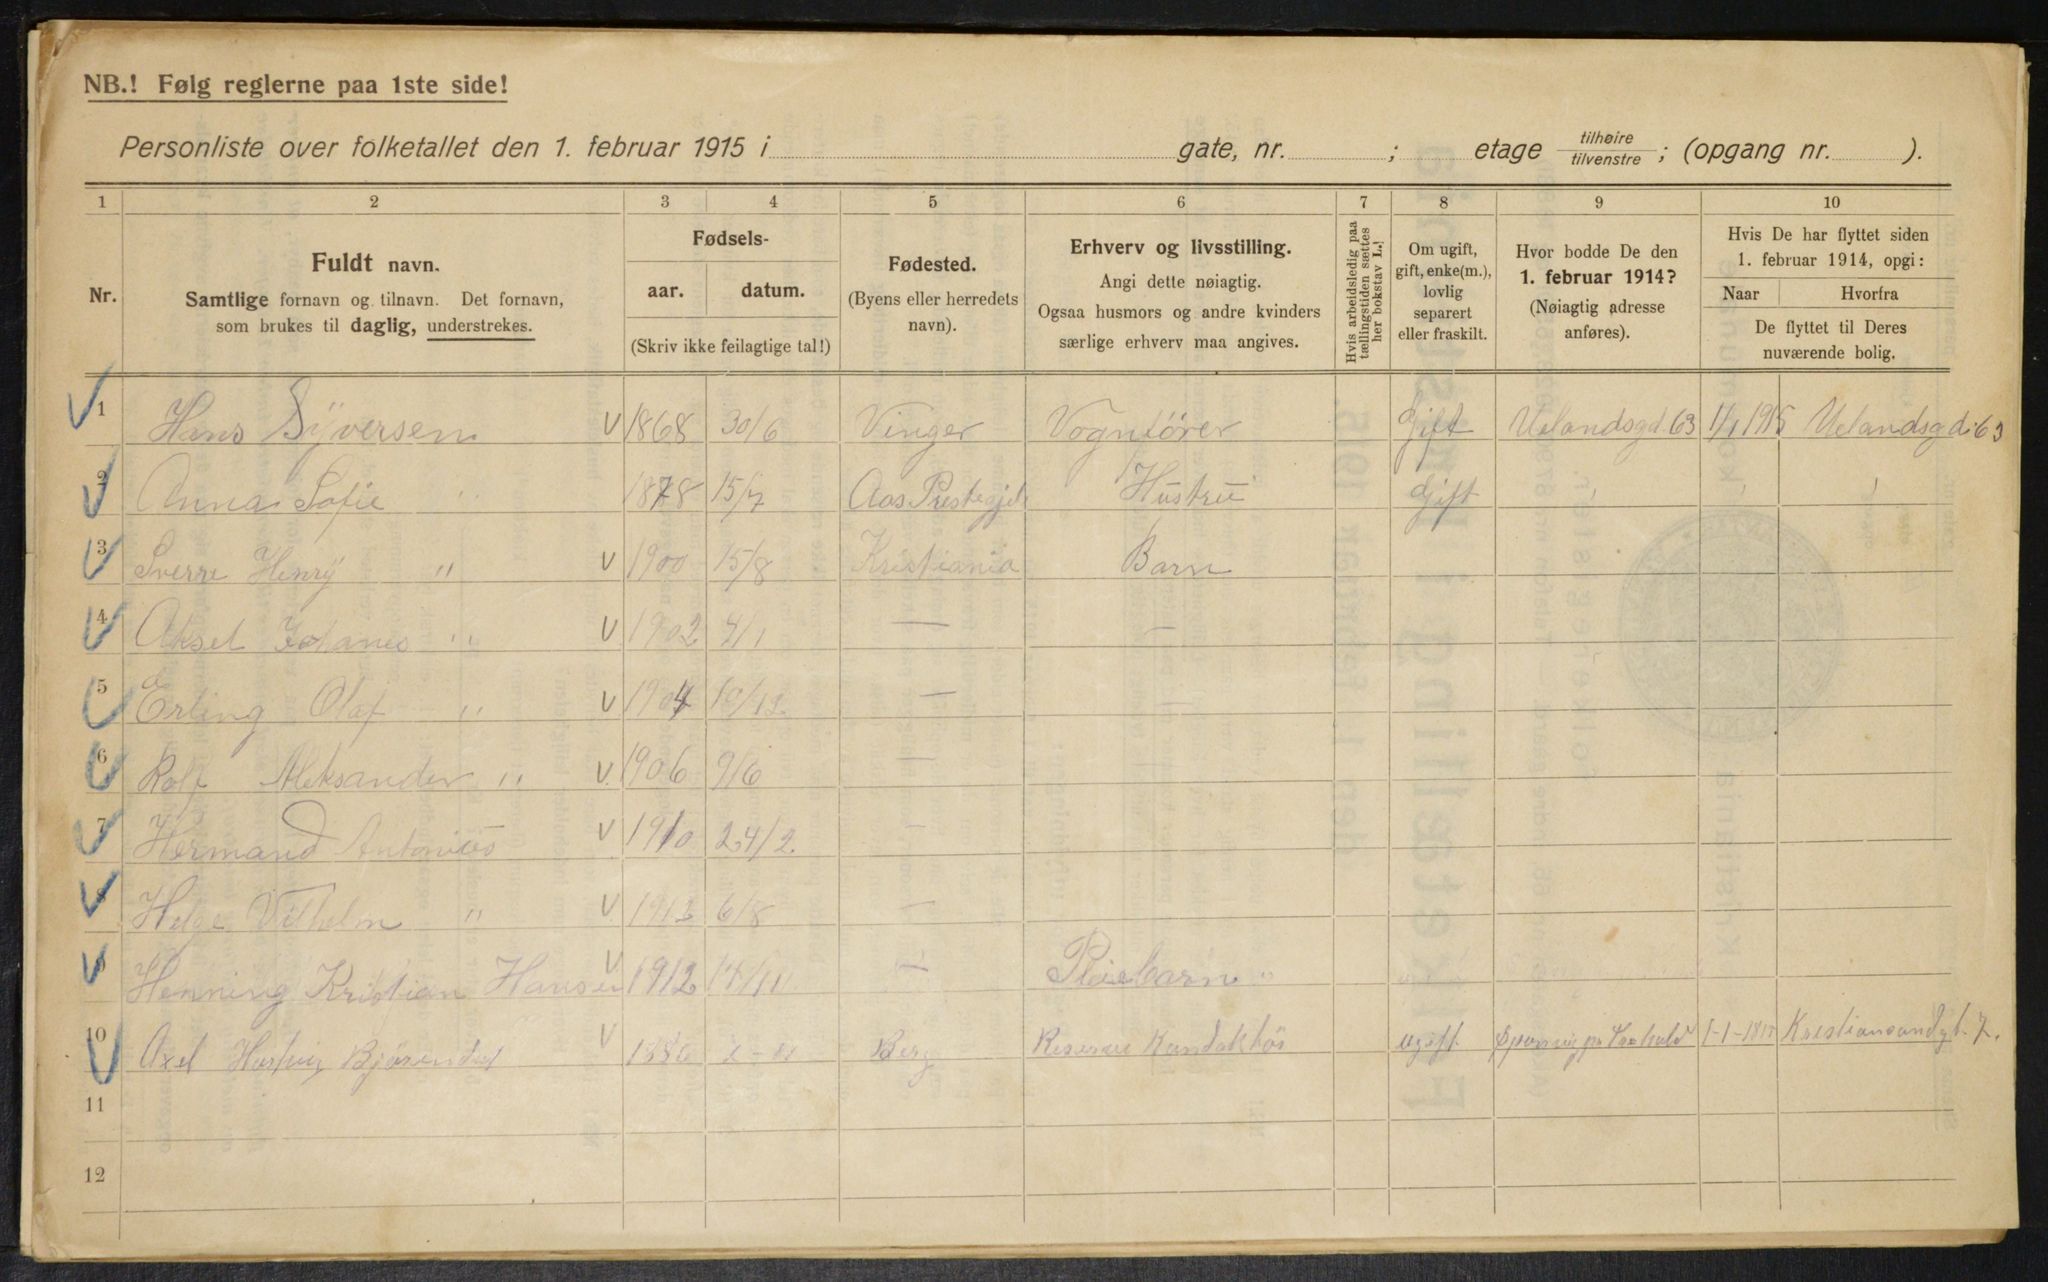 NB.! Følg reglerne paa 1ste side!
Personliste over folketallet den 1. februar 1915 i gate, nr. ; etage tilhøire tilvenstre ; (opgang nr. ).
1 2 3 4 5 6 7 8 9 10
Nr.
Fuldt navn.
Samtlige fornavn og tilnavn. Det fornavn,
som brukes til daglig, understrekes.
Fødsels-
aar. datum.
(Skriv ikke feilagtige tal!)
Fødested.
(Byens eller herredets
navn).
Erhverv og livsstilling.
Angi dette nøiagtig.
Ogsaa husmors og andre kvinders
særlige erhverv maa angives.
Hvis arbeidsledig paa
tællingstiden sættes
her bokstav L.
Om ugift,
gift, enke(m.),
lovlig
separert
eller fraskilt.
Hvor bodde De den
1. februar 1914?
(Nøiagtig adresse
anføres).
Hvis De har flyttet siden
1. februar 1914, opgi:
Naar Hvorfra
De flyttet til Deres
nuværende bolig.
1 Hans Syversen 1868 30/6 Vinger Vognfører Gift Uelandsgd 63 1/1 1915 Uelandsgd. 63
2 Anna Sofie " 1878 15/7 Aas Prestegjeld Hustru Gift
3 Sverre Henry " 1900 15/8 Kristiania Barn
4 Aksel Johanes " 1902 4/1 — —
5 Erling Olaf " 1904 10/12 —
6 Rolf Aleksander " 1906 9/6 —
7 Hermand Antonius 1910 24/2 —
8 Helge Vilhelm " 1913 6/8 —
Henning Kristian Hansen 1912 11 — Pleiebarn "
10 Axel Bjørendal 1880 Berg Reserve Konduktør ugift 1-1- Kristiansandgt. 7.
11
12